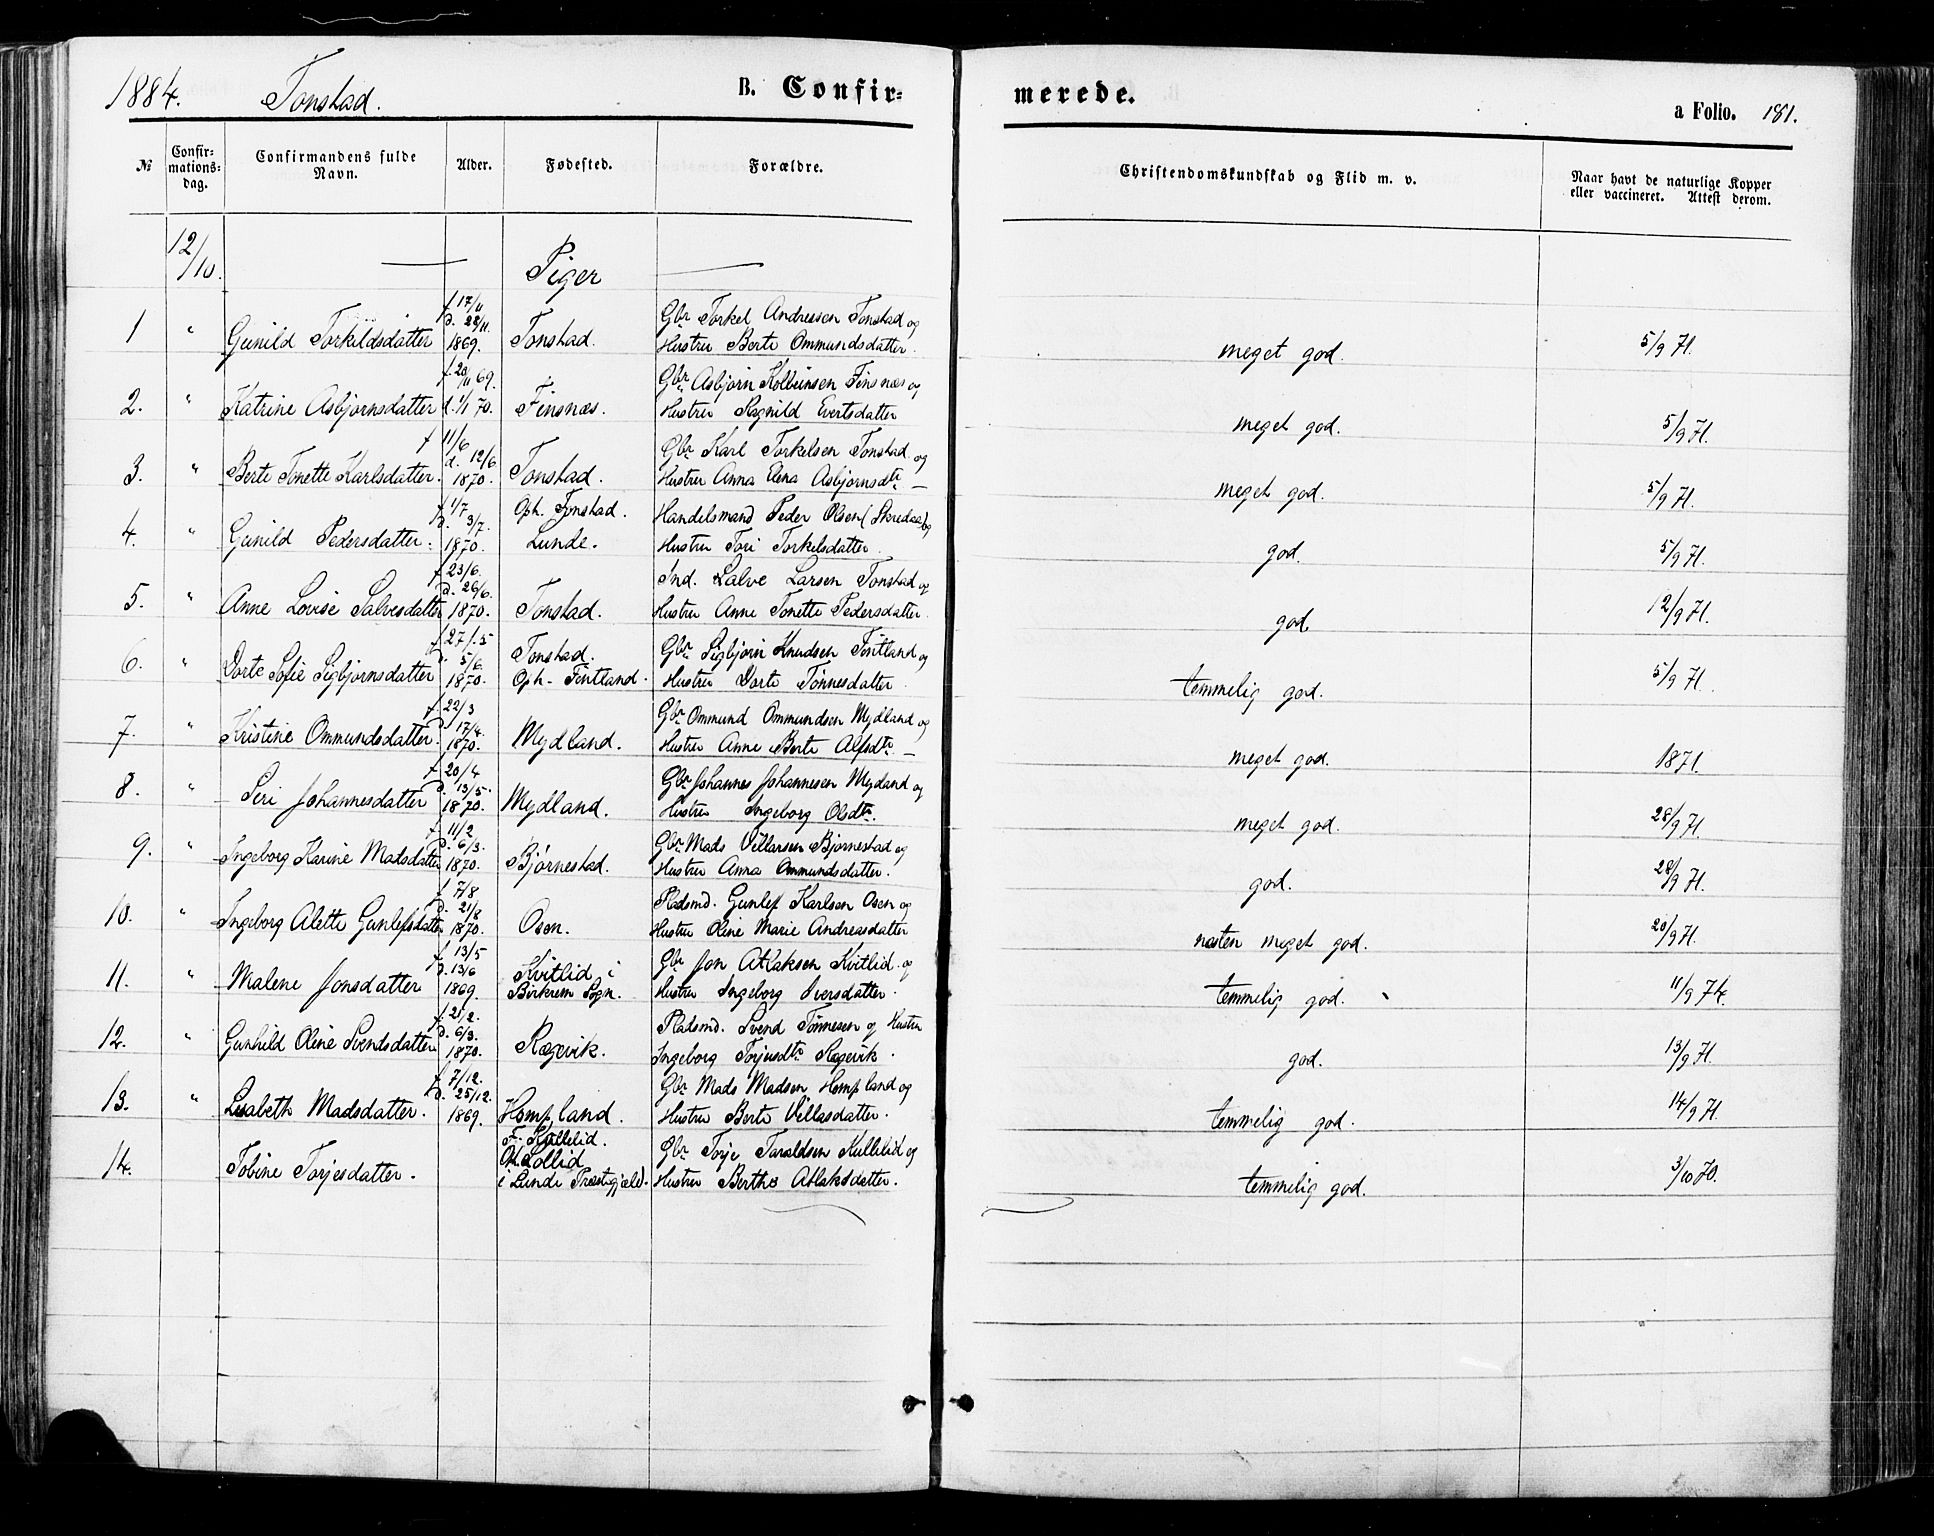 1884. Tonstad. B. Confirmerede. a Folio. 181.
№ Confirmations-dag. Confirmandens fulde Navn. Alder. Fødested. Forældre. Christendomskundskab og Flid m. v. Naar havt de naturlige Kopper eller vaccineret. Attest derom.
12/10. Piger
1 " Gunild Torkildsdatter f 17/11 d. 28/11. 1869. Tonstad. Gbr Torkel Andreesen Tonstad og Hustru Berte Ommundsdatter. meget god. 5/9 71.
2. " Katrine Asbjørnsdatter f. 20/11 69. d. 1/1 70. Finsnæs. Gbr Asbjørn Kolbeinsen Finsnæs og Hustru Ragnild Evertsdatter meget god. 5/9 71.
3. " Berte Tonette Karlsdatter. f 11/6 d. 12/6 1870. Tonstad. Gbr Karl Torkelsen Tonstad og Hustru Anna Elena Asbjørnsdtr – meget god. 5/9 71.
4. " Gunild Pedersdatter. f 1/7 d. 3/7. 1870. Oph. Tonstad. Lunde. Handelsmand Peder Olsen (Skredaa) og Hustru Tori Torkelsdatter. god. 5/9 71.
5. " Anne Lovise Salvesdatter f 23/6. d. 26/6. 1870. Tonstad. Ind. Salve Larsen Tonstad og Hustru Anne Tonette Pedersdatter. god 12/9 71.
6. " Dorte Sofie Sigbjørnsdatter f 27/5 d. 5/6. 1870. Tonstad. Oph. Fintland. Gbr Sigbjørn Knudsen Fintland og Hustru Dorte Tønnesdatter. temmelig god. 5/9 71.
7. " Kristine Ommundsdatter. f 22/3 d 17/4. 1870. Mydland. Gbr Ommund Ommundsen Mydland og Hustru Anne Berte Alfsdtr – meget god. 1871.
8. " Siri Johannesdatter f 20/4 d. 13/5. 1870. Mydland. Gbr Johannes Johannesen Mydland og Hustru Ingeborg Olsdtr. meget god. 28/9 71.
9. " Ingeborg Karine Madsdatter f 11/2 d. 6/3. 1870. Bjørnestad. Gbr Mads Villarsen Bjørnestad og Hustru Anna Ommundsdatter. god. 28/9 71.
10. " Ingeborg Alette Gunlefsdatter f 7/8 d. 21/8 1870. Osen. Pladsmd. Gunlef Karlsen Osen og Hustru Oline Marie Andreasdatter næsten meget god. 20/9 71.
11. " Malene Jonsdatter f 13/5 d. 13/6 1869. Kvitlid i Birkrem Sogn. Gbr Jon Atlaksen Kvitlid og Hustru Ingeborg Iversdatter. temmelig god. 11/9 74.
12. " Gunhild Oline Svendsdatter f 21/2. d. 6/3. 1870. Ragevik. Pladsmd. Svend Tønnesen og Hustru Ingeborg Torjusdtr Ragevik. god. 13/9 71.
13. " Lisabeth Madsdatter. f 7/12. d. 25/12. 1869. Hompland. Gbr Mads Madsen Hompland og Hustru Berte Villasdatter. temmelig god. 14/9 71.
14. Tobine Torjesdatter. F. Kullelid. i Lunde Præstegjæld. Gbr Torje Taraldsen Kullelid og Hustru Berthe Atlaksdatter. temmelig god. 3/10 70.